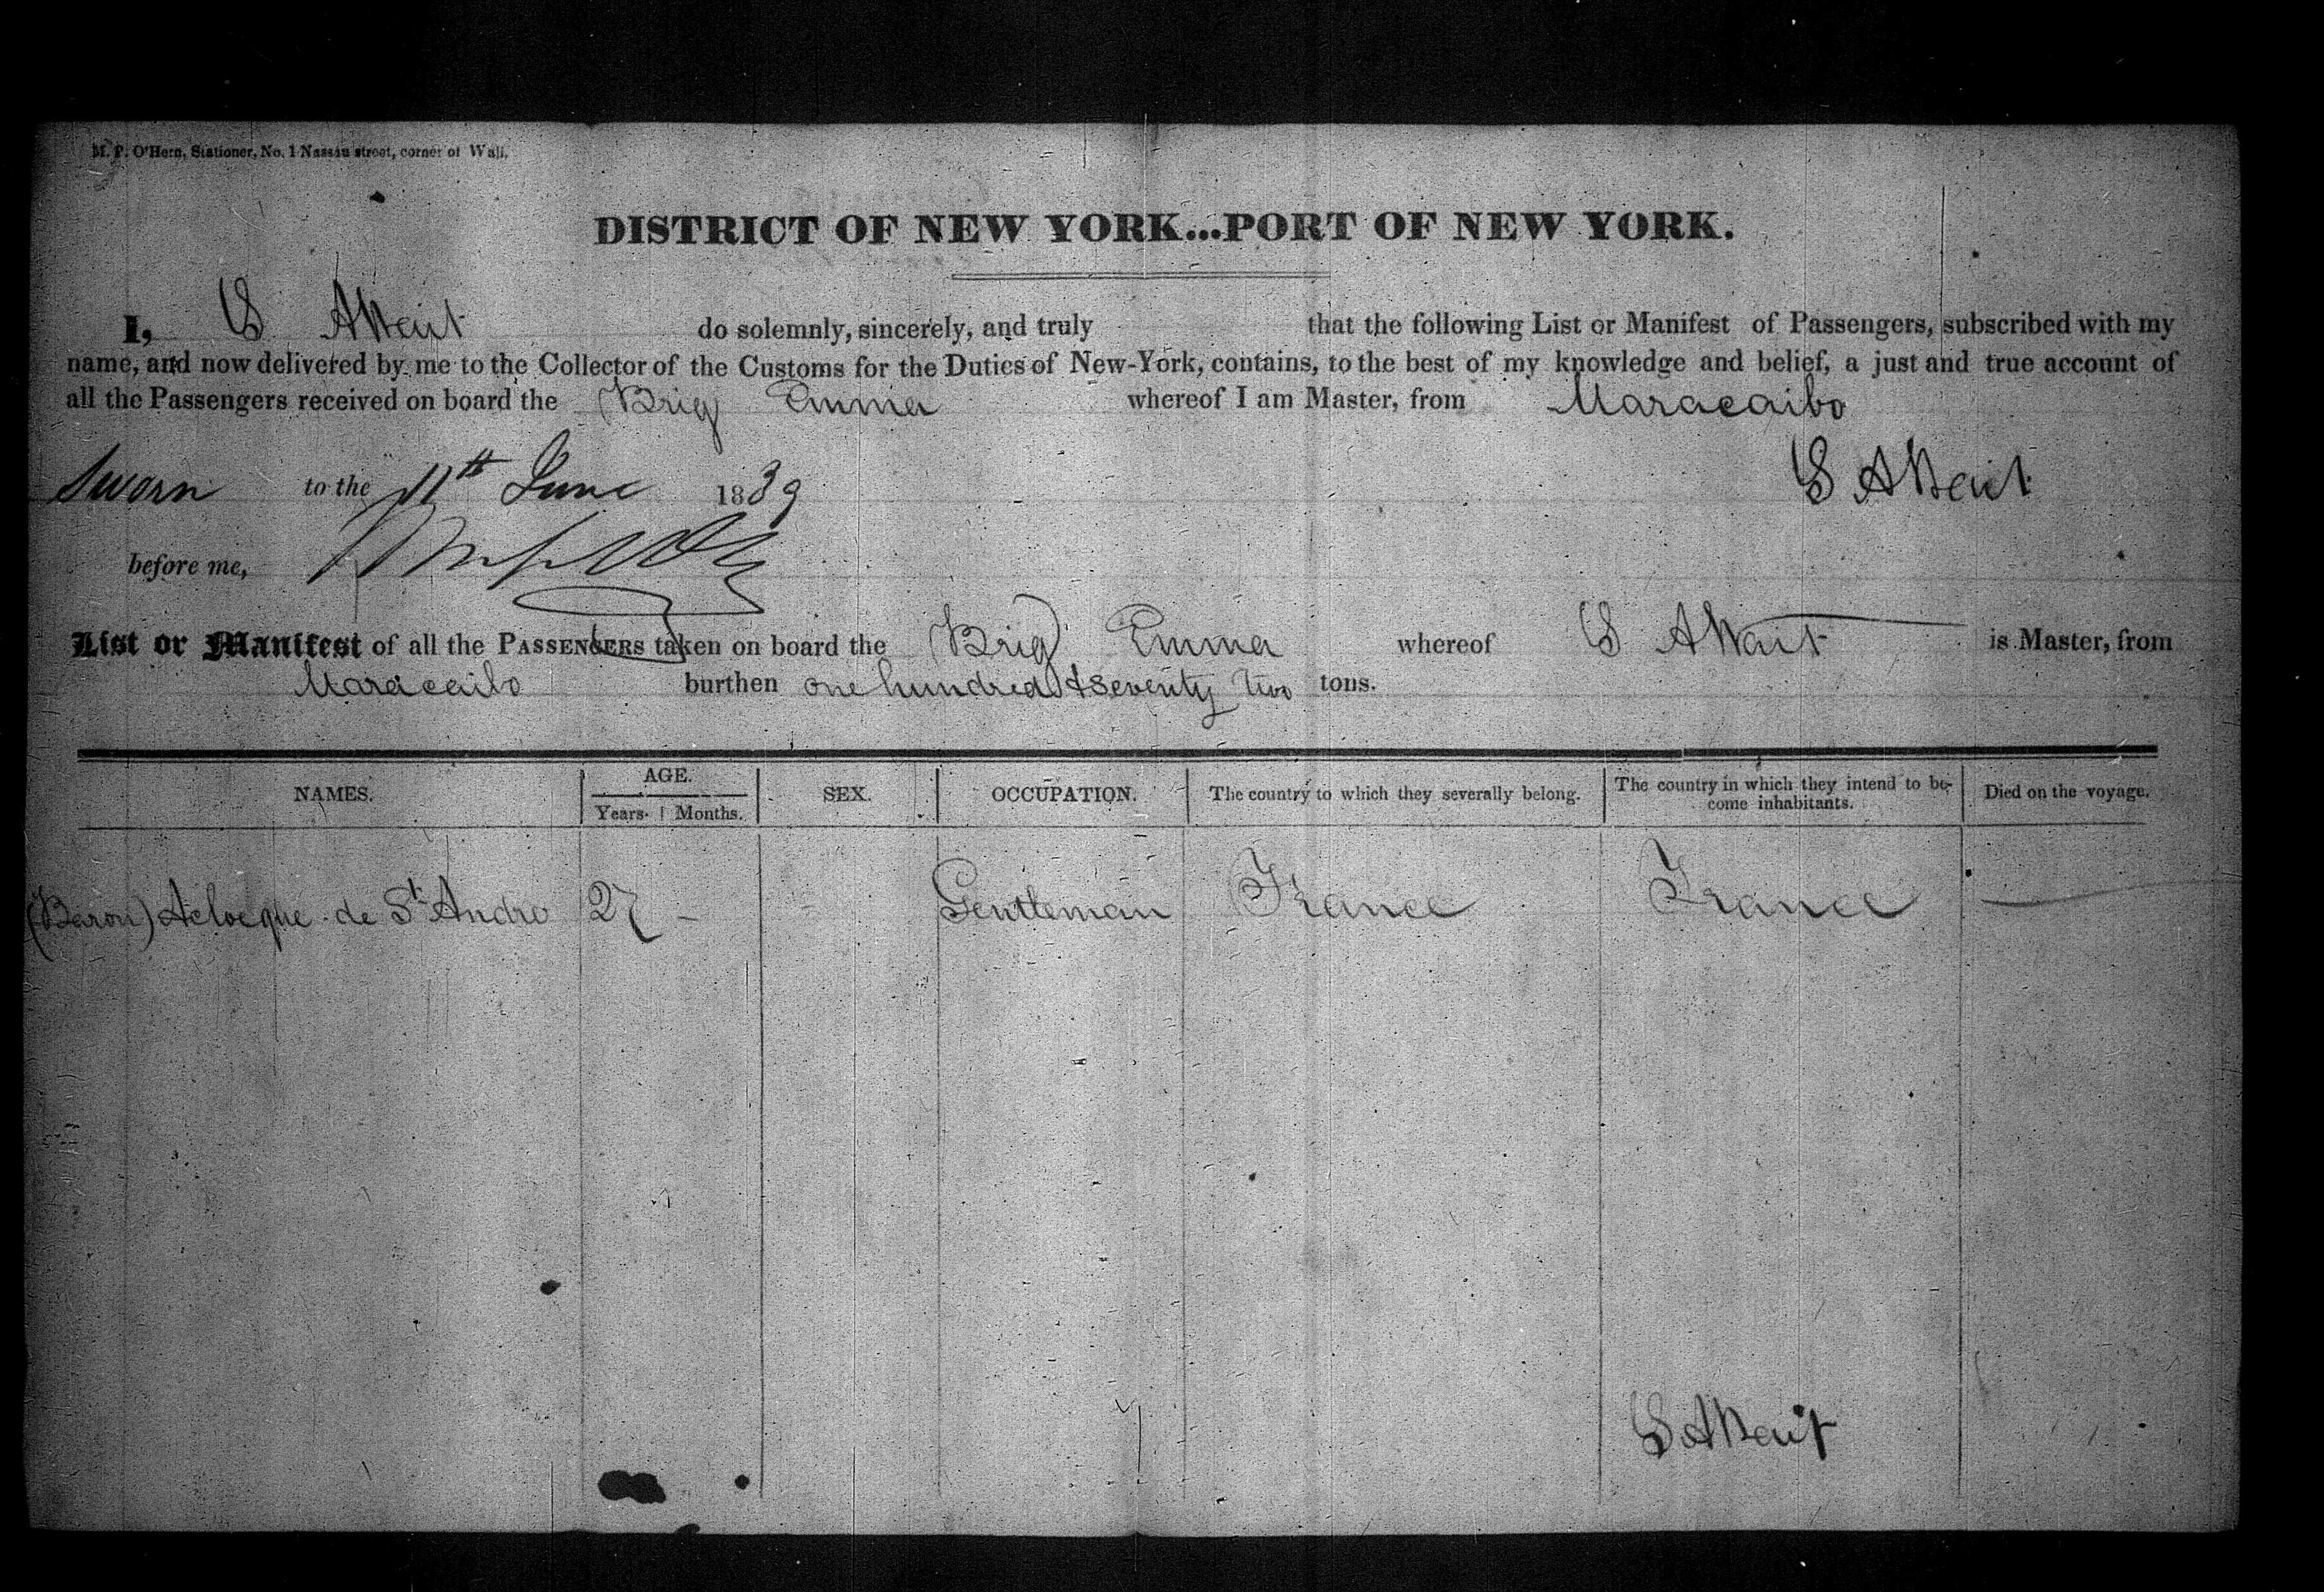 M. P. O'Hern, Stationer, No. 1 Nassau street, corner of Wall.
DISTRICT OF NEW YORK...PORT OF NEW YORK.
I, S A Wait do solemnly, sincerely, and truly that the following List or Manifest of Passengers, subscribed with my
name, and now delivered by me to the Collector of the Customs for the Duties of New-York, contains, to the best of my knowledge and belief, a just and true account of
all the Passengers received on board the Brig Emma whereof I am Master, from Maracaibo
Sworn to the 11th June 1839 S A Wait
before me,
List or Manifest of all the PASSENGERS taken on board the Brig Emma whereof S A Wait is Master, from
Maracaibo burthen one hundred & seventy two tons.
NAMES. AGE. SEX. OCCUPATION. The country to which they severally belong. The country in which they intend to be-
come inhabitants. Died on the voyage.
Years. Months.
(Baron) Acloque de St Andre 27 - - Gentleman France France —
S A Wait